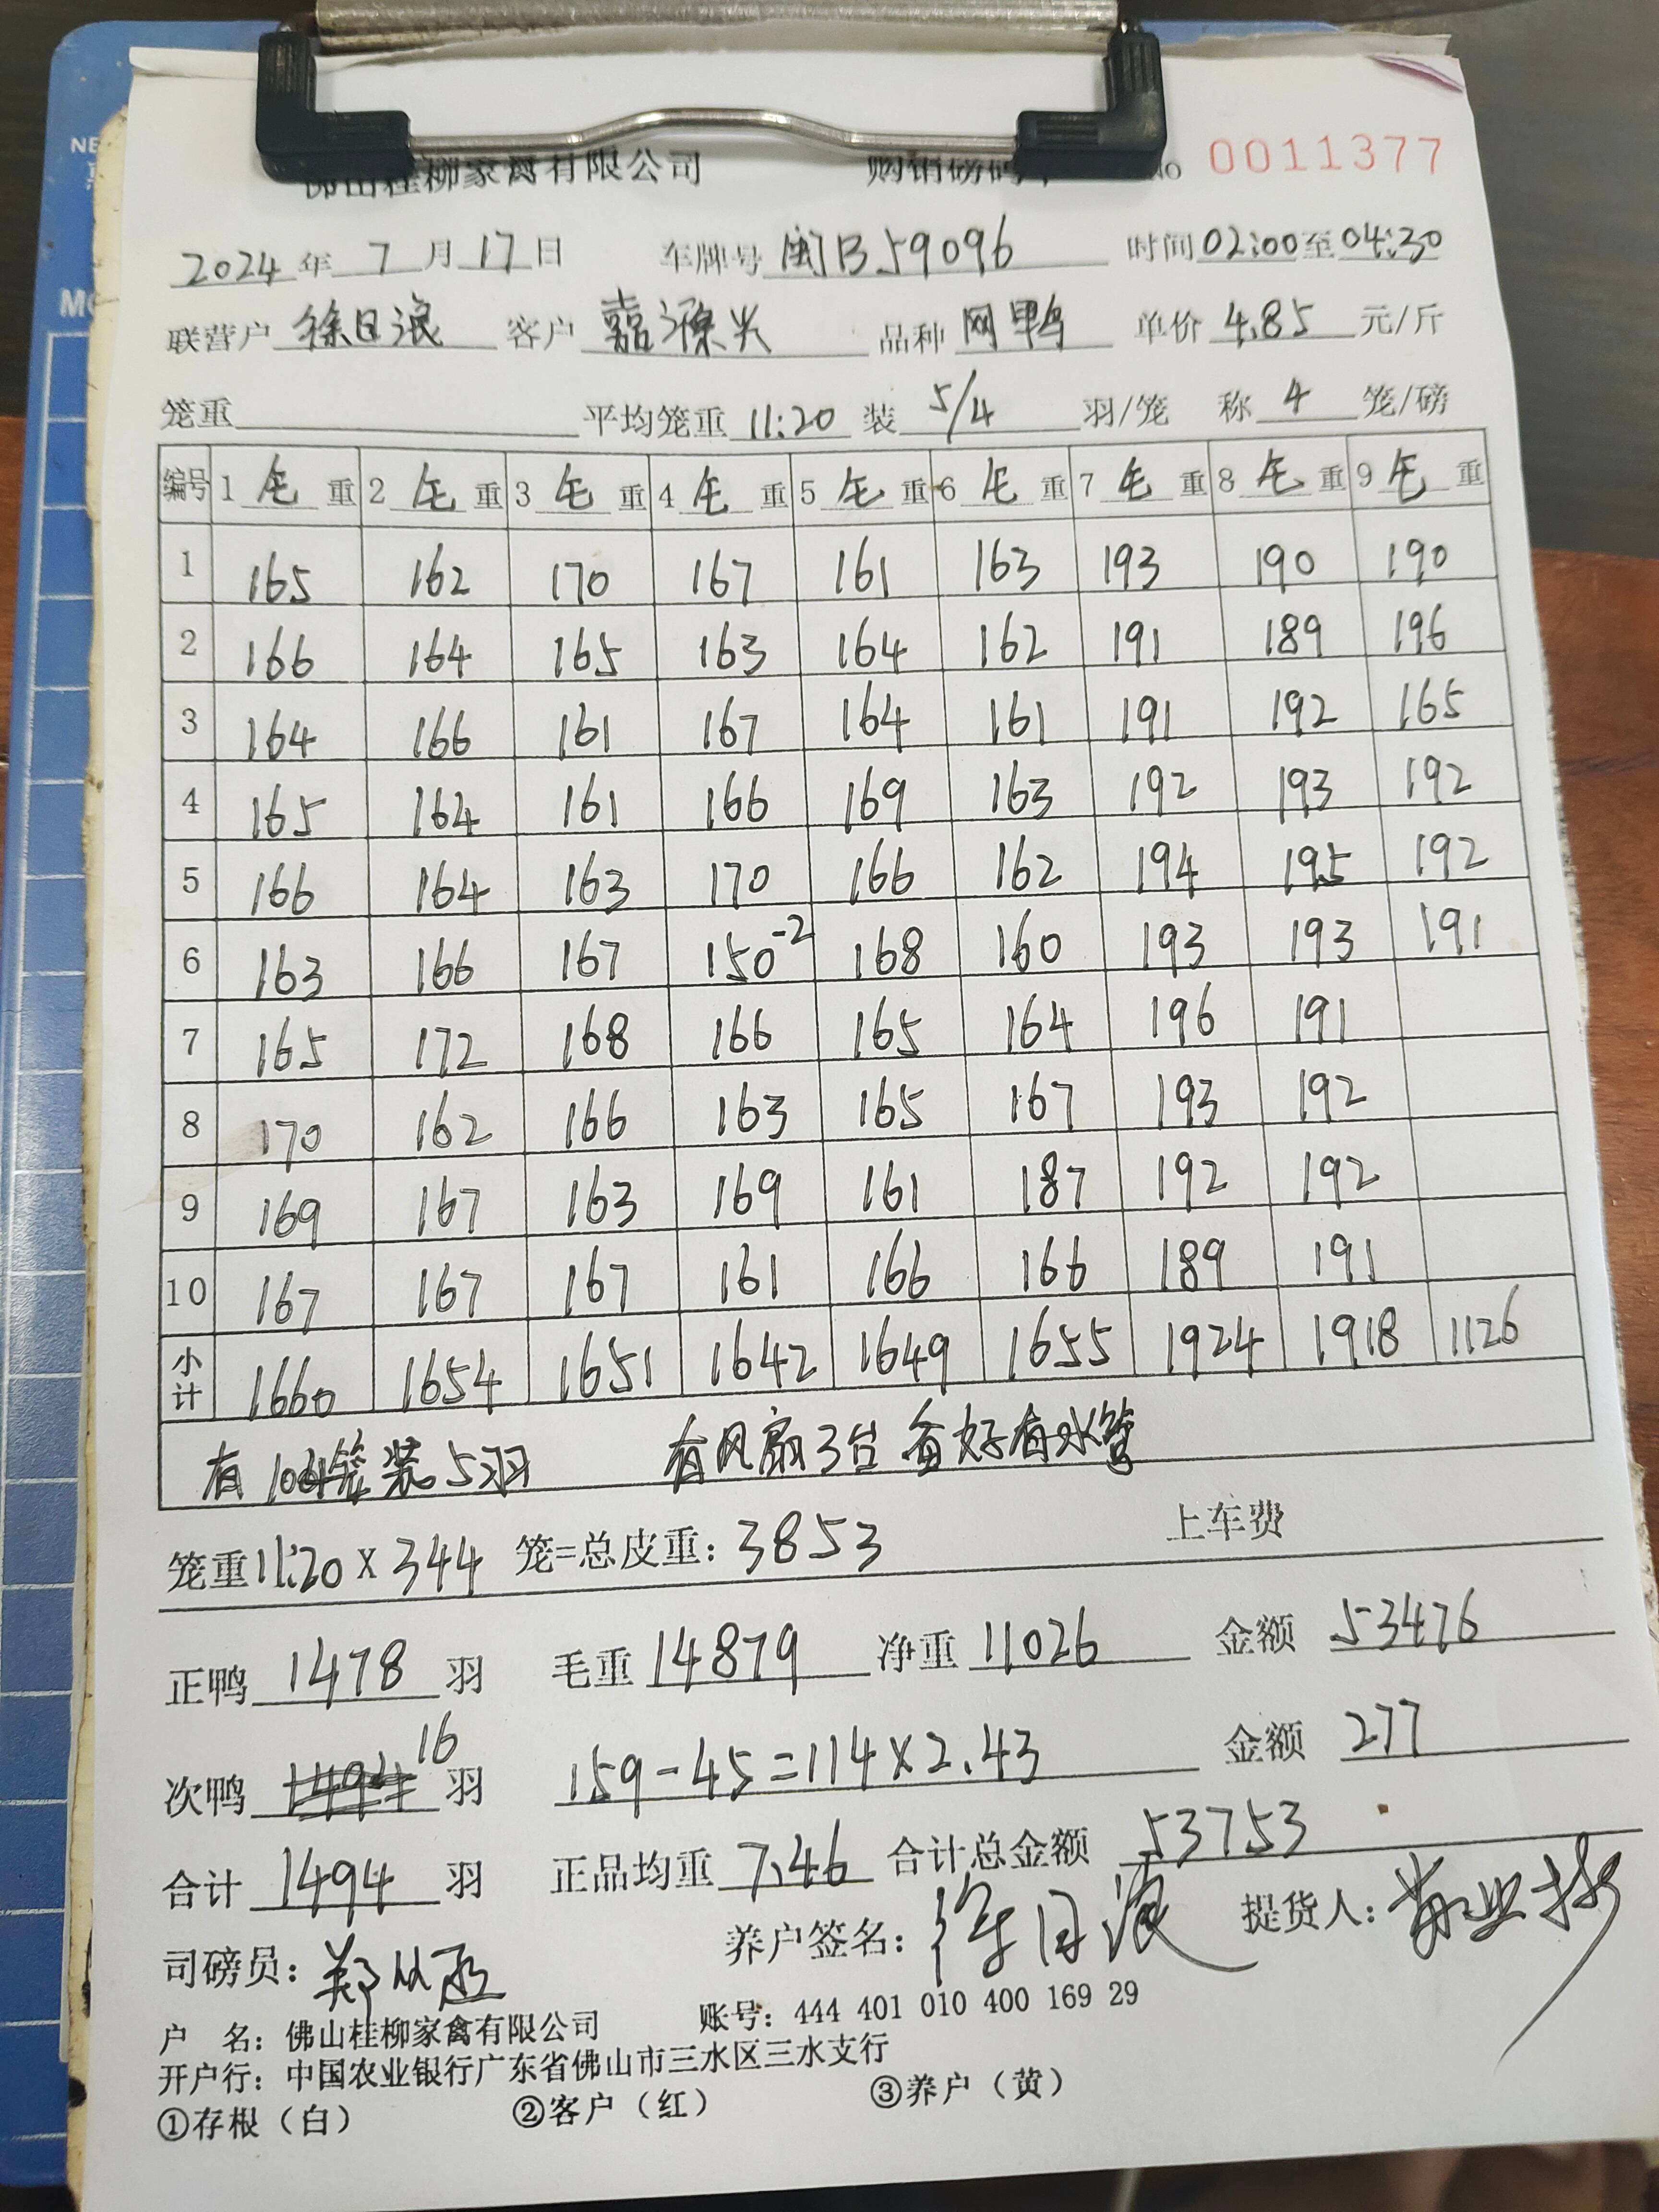 佛山桂柳家禽有限公司 购销磅码单 No 0011377
2024年7月17日 车牌号闽B59096 时间02:00至04:30
联营户徐日浪 客户嘉源兴 品种网鸭 单价4.85元/斤
笼重 平均笼重11:20 装5/4羽/笼 称4笼/磅
编号 1毛重 2毛重 3毛重 4毛重 5毛重 6毛重 7毛重 8毛重 9毛重
1 165 162 170 167 161 163 193 190 190
2 166 164 165 163 164 162 191 189 196
3 164 166 161 167 164 161 191 192 165
4 165 164 161 166 169 163 192 193 192
5 166 164 163 170 166 162 194 195 192
6 163 166 167 150-2 168 160 193 193 191
7 165 172 168 166 165 164 196 191
8 170 162 166 163 165 167 193 192
9 169 167 163 169 161 187 192 192
10 167 167 167 161 166 166 189 191
小计 1660 1654 1651 1642 1649 1655 1924 1918 1126
有 笼装5羽 有风扇3台 好有水管
笼重11:20×344 笼=总皮重:3853 上车费
正鸭1478羽 毛重14879 净重11026 金额53476
次鸭1494 16羽 159-45=114×2.43 金额277
合计1494羽 正品均重7.46 合计总金额53753
司磅员: 养户签名:徐日浪 提货人:
户 名:佛山桂柳家禽有限公司 账号:444 401 010 400 169 29
开户行:中国农业银行广东省佛山市三水区三水支行
①存根(白) ②客户(红) ③养户(黄)
NE
MO